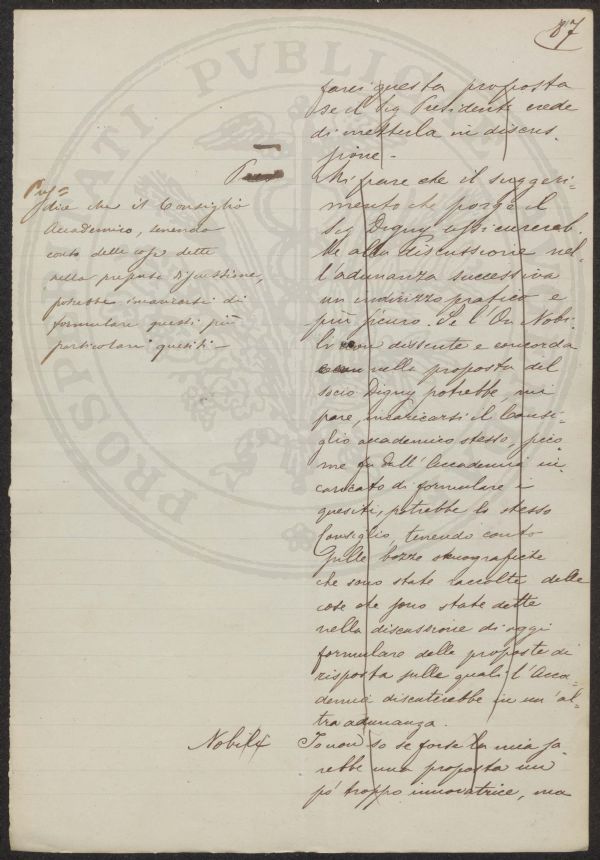 87
farei questa proposta
se il Sig Presidente crede
di metterla in discus-
sione -
Pres
Mi pare che il suggeri-
mento che porge il
Sig Digny assicurereb-
be alla discussione nel-
l'adunanza successiva
un indirizzo pratico e
più sicuro. Se l'On Nobi-
li non dissente e concorda
nella proposta del
socio Digny potrebbe, mi
pare, incaricarsi il Consi-
glio accademico stesso, sico
me fu dall'Accademia in-
caricato di formulare i
quesiti, potrebbe lo stesso
Consiglio, tenendo conto
sulle bozze stenografiche
che sono state raccolte delle
cose che sono state dette
nella discussione di oggi
formulare delle proposte di
risposta sulle quali l'Acca-
demia discuterebbe in un'al-
tra adunanza.
Nobili
Io non so se forse la mia sa-
rebbe una proposta un
pó troppo innovatrice, ma
Pres
dice che il Consiglio
Accademico, tenendo
conto delle cose dette
nella presente Discussione,
potrebbe incaricarsi di
formulare questi più
particolari quesiti -
PROSPERITATI PVBLICAE